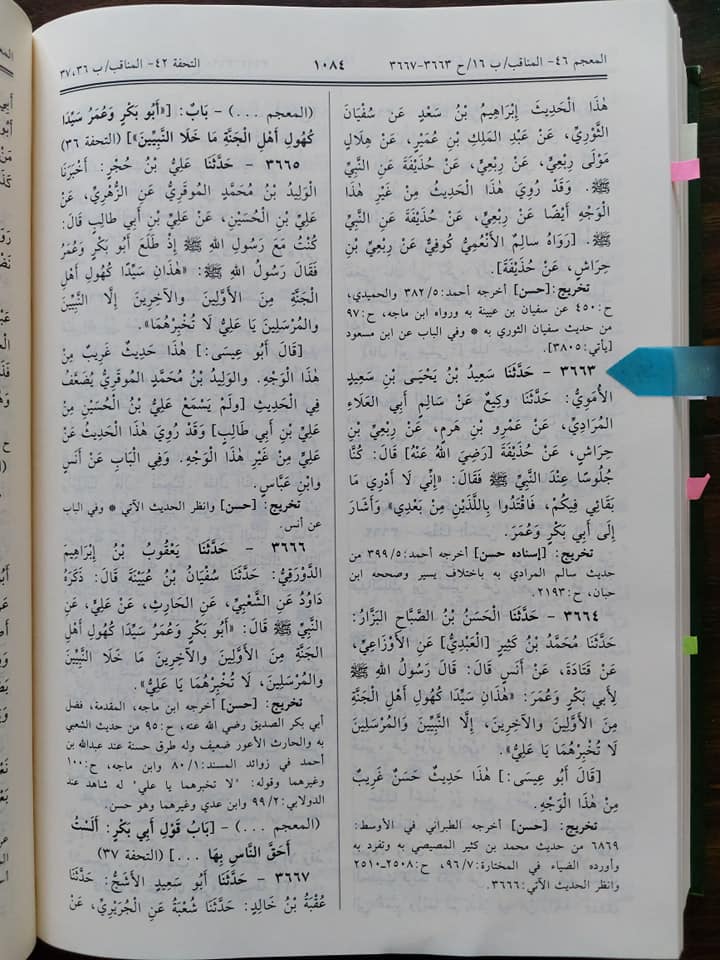 المعجم ٤٦- المناقب/ ب ١٦/ح ٣٦٦٣-٣٦٦٧
١٠٨٤
التحفة ٤٢- المناقب/ ب ٣٧،٣٦
هٰذَا الْحَدِيثَ إِبْرَاهِيمُ بْنُ سَعْدٍ عَنْ سُفْيَانَ
الثَّوْرِيِّ، عَنْ عَبْدِ الْمَلِكِ بْنِ عُمَيْرٍ، عَنْ هِلَالٍ
مَوْلَى رِبْعِيٍّ، عَنْ رِبْعِيٍّ، عَنْ حُذَيْفَةَ عَنِ النَّبِيِّ
ﷺ. وَقَدْ رُوِيَ هٰذَا الْحَدِيثُ مِنْ غَيْرِ هٰذَا
الْوَجْهِ أَيْضًا عَنْ رِبْعِيٍّ، عَنْ حُذَيْفَةَ عَنِ النَّبِيِّ
ﷺ. [رَوَاهُ سالِمٌ الأَنْعُمِيُّ كُوفِيٌّ عَنْ رِبْعِيِّ بْنِ
حِرَاشٍ، عَنْ حُذَيْفَةَ].
تخريج: [حسن] أخرجه أحمد:٣٨٢/٥ والحميدي،
ح:٤٥٠ عن سفيان بن عيينة به ورواه ابن ماجه، ح:٩٧
من حديث سفيان الثوري به * وفي الباب عن ابن مسعود
[يأتي:٣٨٠٥].
٣٦٦٣ - حَدَّثَنَا سَعِيدُ بْنُ يَحْيَى بْنِ سَعِيدٍ
الأُمَوِيُّ: حَدَّثَنَا وَكِيعٌ عَنْ سَالِمٍ أَبِي الْعَلَاءِ
الْمُرَادِيِّ، عَنْ عَمْرِو بْنِ هَرِمٍ، عَنْ رِبْعِيِّ بْنِ
حِرَاشٍ، عَنْ حُذَيْفَةَ [رَضِيَ اللهُ عَنْهُ] قَالَ: كُنَّا
جُلُوسًا عِنْدَ النَّبِيِّ ﷺ فَقَالَ: «إِنِّي لَا أَدْرِي مَا
بَقَائِي فِيكُمْ، فَاقْتَدُوا بِاللَّذَيْنِ مِنْ بَعْدِي» وَأَشَارَ
إِلَى أَبِي بَكْرٍ وَعُمَرَ.
تخريج: [إسناده حسن] أخرجه أحمد:٣٩٩/٥ من
حديث سالم المرادي به باختلاف يسير وصححه ابن
حبان، ح:٢١٩٣.
٣٦٦٤ - حَدَّثَنَا الْحَسَنُ بْنُ الصَّبَّاحِ الْبَزَّارُ:
حَدَّثَنَا مُحَمَّدُ بْنُ كَثِيرٍ [الْعَبْدِيُّ] عَنِ الأَوْزَاعِيِّ،
عَنْ قَتَادَةَ، عَنْ أَنَسٍ قَالَ: قَالَ رَسُولُ اللهِ ﷺ
لِأَبِي بَكْرٍ وَعُمَرَ: «هٰذَانِ سَيِّدَا كُهُولِ أَهْلِ الْجَنَّةِ
مِنَ الأَوَّلِينَ وَالآخِرِينَ، إِلَّا النَّبِيِّينَ وَالْمُرْسَلِينَ
لَا تُخْبِرْهُمَا يَا عَلِيُّ».
[قَالَ أَبُو عِيسَى:] هٰذَا حَدِيثٌ حَسَنٌ غَرِيبٌ
مِنْ هٰذَا الْوَجْهِ.
تخريج: [حسن] أخرجه الطبراني في الأوسط:
٦٨٦٩ من حديث محمد بن كثير المصيصي به وتفرد به
وأورده الضياء في المختارة:٩٦/٧، ح:٢٥٠٨-٢٥١٠
وانظر الحديث الآتي:٣٦٦٦.
(المعجم ...) - بَابٌ: [«أَبُو بَكْرٍ وَعُمَرُ سَيِّدَا
كُهُولِ أَهْلِ الْجَنَّةِ مَا خَلَا النَّبِيِّينَ»] (التحفة ٣٦)
٣٦٦٥ - حَدَّثَنَا عَلِيُّ بْنُ حُجْرٍ: أَخْبَرَنَا
الْوَلِيدُ بْنُ مُحَمَّدٍ الْمُوقَرِيُّ عَنِ الزُّهْرِيِّ، عَنْ
عَلِيِّ بْنِ الْحُسَيْنِ، عَنْ عَلِيِّ بْنِ أَبِي طالِبٍ قَالَ:
كُنْتُ مَعَ رَسُولِ اللهِ ﷺ إِذْ طَلَعَ أَبُو بَكْرٍ وَعُمَرُ
فَقَالَ رَسُولُ اللهِ ﷺ: «هٰذَانِ سَيِّدَا كُهُولِ أَهْلِ
الْجَنَّةِ مِنَ الأَوَّلِينَ وَالآخِرِينَ إِلَّا النَّبِيِّينَ
وَالْمُرْسَلِينَ يَا عَلِيُّ لَا تُخْبِرْهُمَا».
[قَالَ أَبُو عِيسَى:] هٰذَا حَدِيثٌ غَرِيبٌ مِنْ
هٰذَا الْوَجْهِ. وَالْوَلِيدُ بْنُ مُحَمَّدٍ الْمُوقَرِيُّ يُضَعَّفُ
فِي الْحَدِيثِ [وَلَمْ يَسْمَعْ عَلِيُّ بْنُ الْحُسَيْنِ مِنْ
عَلِيِّ بْنِ أَبِي طَالِبٍ] وَقَدْ رُوِيَ هٰذَا الْحَدِيثُ عَنْ
عَلِيٍّ مِنْ غَيْرِ هٰذَا الْوَجْهِ. وَفِي الْبَابِ عَنْ أَنَسٍ
وابْنِ عَبَّاسٍ.
تخريج: [حسن] وانظر الحديث الآتي * وفي الباب
عن أنس.
٣٦٦٦ - حَدَّثَنَا يَعْقُوبُ بْنُ إِبْرَاهِيمَ
الدَّوْرَقِيُّ: حَدَّثَنَا سُفْيَانُ بْنُ عُيَيْنَةَ قَالَ: ذَكَرَهُ
دَاوُدُ عَنِ الشَّعْبِيِّ، عَنِ الْحَارِثِ، عَنْ عَلِيٍّ، عَنِ
النَّبِيِّ ﷺ قَالَ: «أَبُو بَكْرٍ وَعُمَرُ سَيِّدَا كُهُولِ أَهْلِ
الْجَنَّةِ مِنَ الأَوَّلِينَ وَالآخِرِينَ مَا خَلَا النَّبِيِّينَ
وَالْمُرْسَلِينَ، لَا تُخْبِرْهُمَا يَا عَلِيُّ».
تخريج: [حسن] أخرجه ابن ماجه، المقدمة، فضل
أبي بكر الصديق رضي الله عنه، ح:٩٥ من حديث الشعبي
به والحارث الأعور ضعيف وله طرق حسنة عند عبدالله بن
أحمد في زوائد المسند:٨٠/١ وابن ماجه، ح:١٠٠
وغيرهما وقوله: "لا تخبرهما يا علي" له شاهد عند
الدولابي:٩٩/٢ وابن عدي وغيرهما وهو حسن.
(المعجم ...) - [بَابُ قَوْلِ أَبِي بَكْرٍ: أَلَسْتُ
أَحَقَّ النَّاسِ بِهَا ...] (التحفة ٣٧)
٣٦٦٧ - حَدَّثَنَا أَبُو سَعِيدٍ الأَشَجُّ: حَدَّثَنَا
عُقْبَةُ بْنُ خَالِدٍ: حَدَّثَنَا شُعْبَةُ عَنِ الْجُرَيْرِيِّ، عَنْ